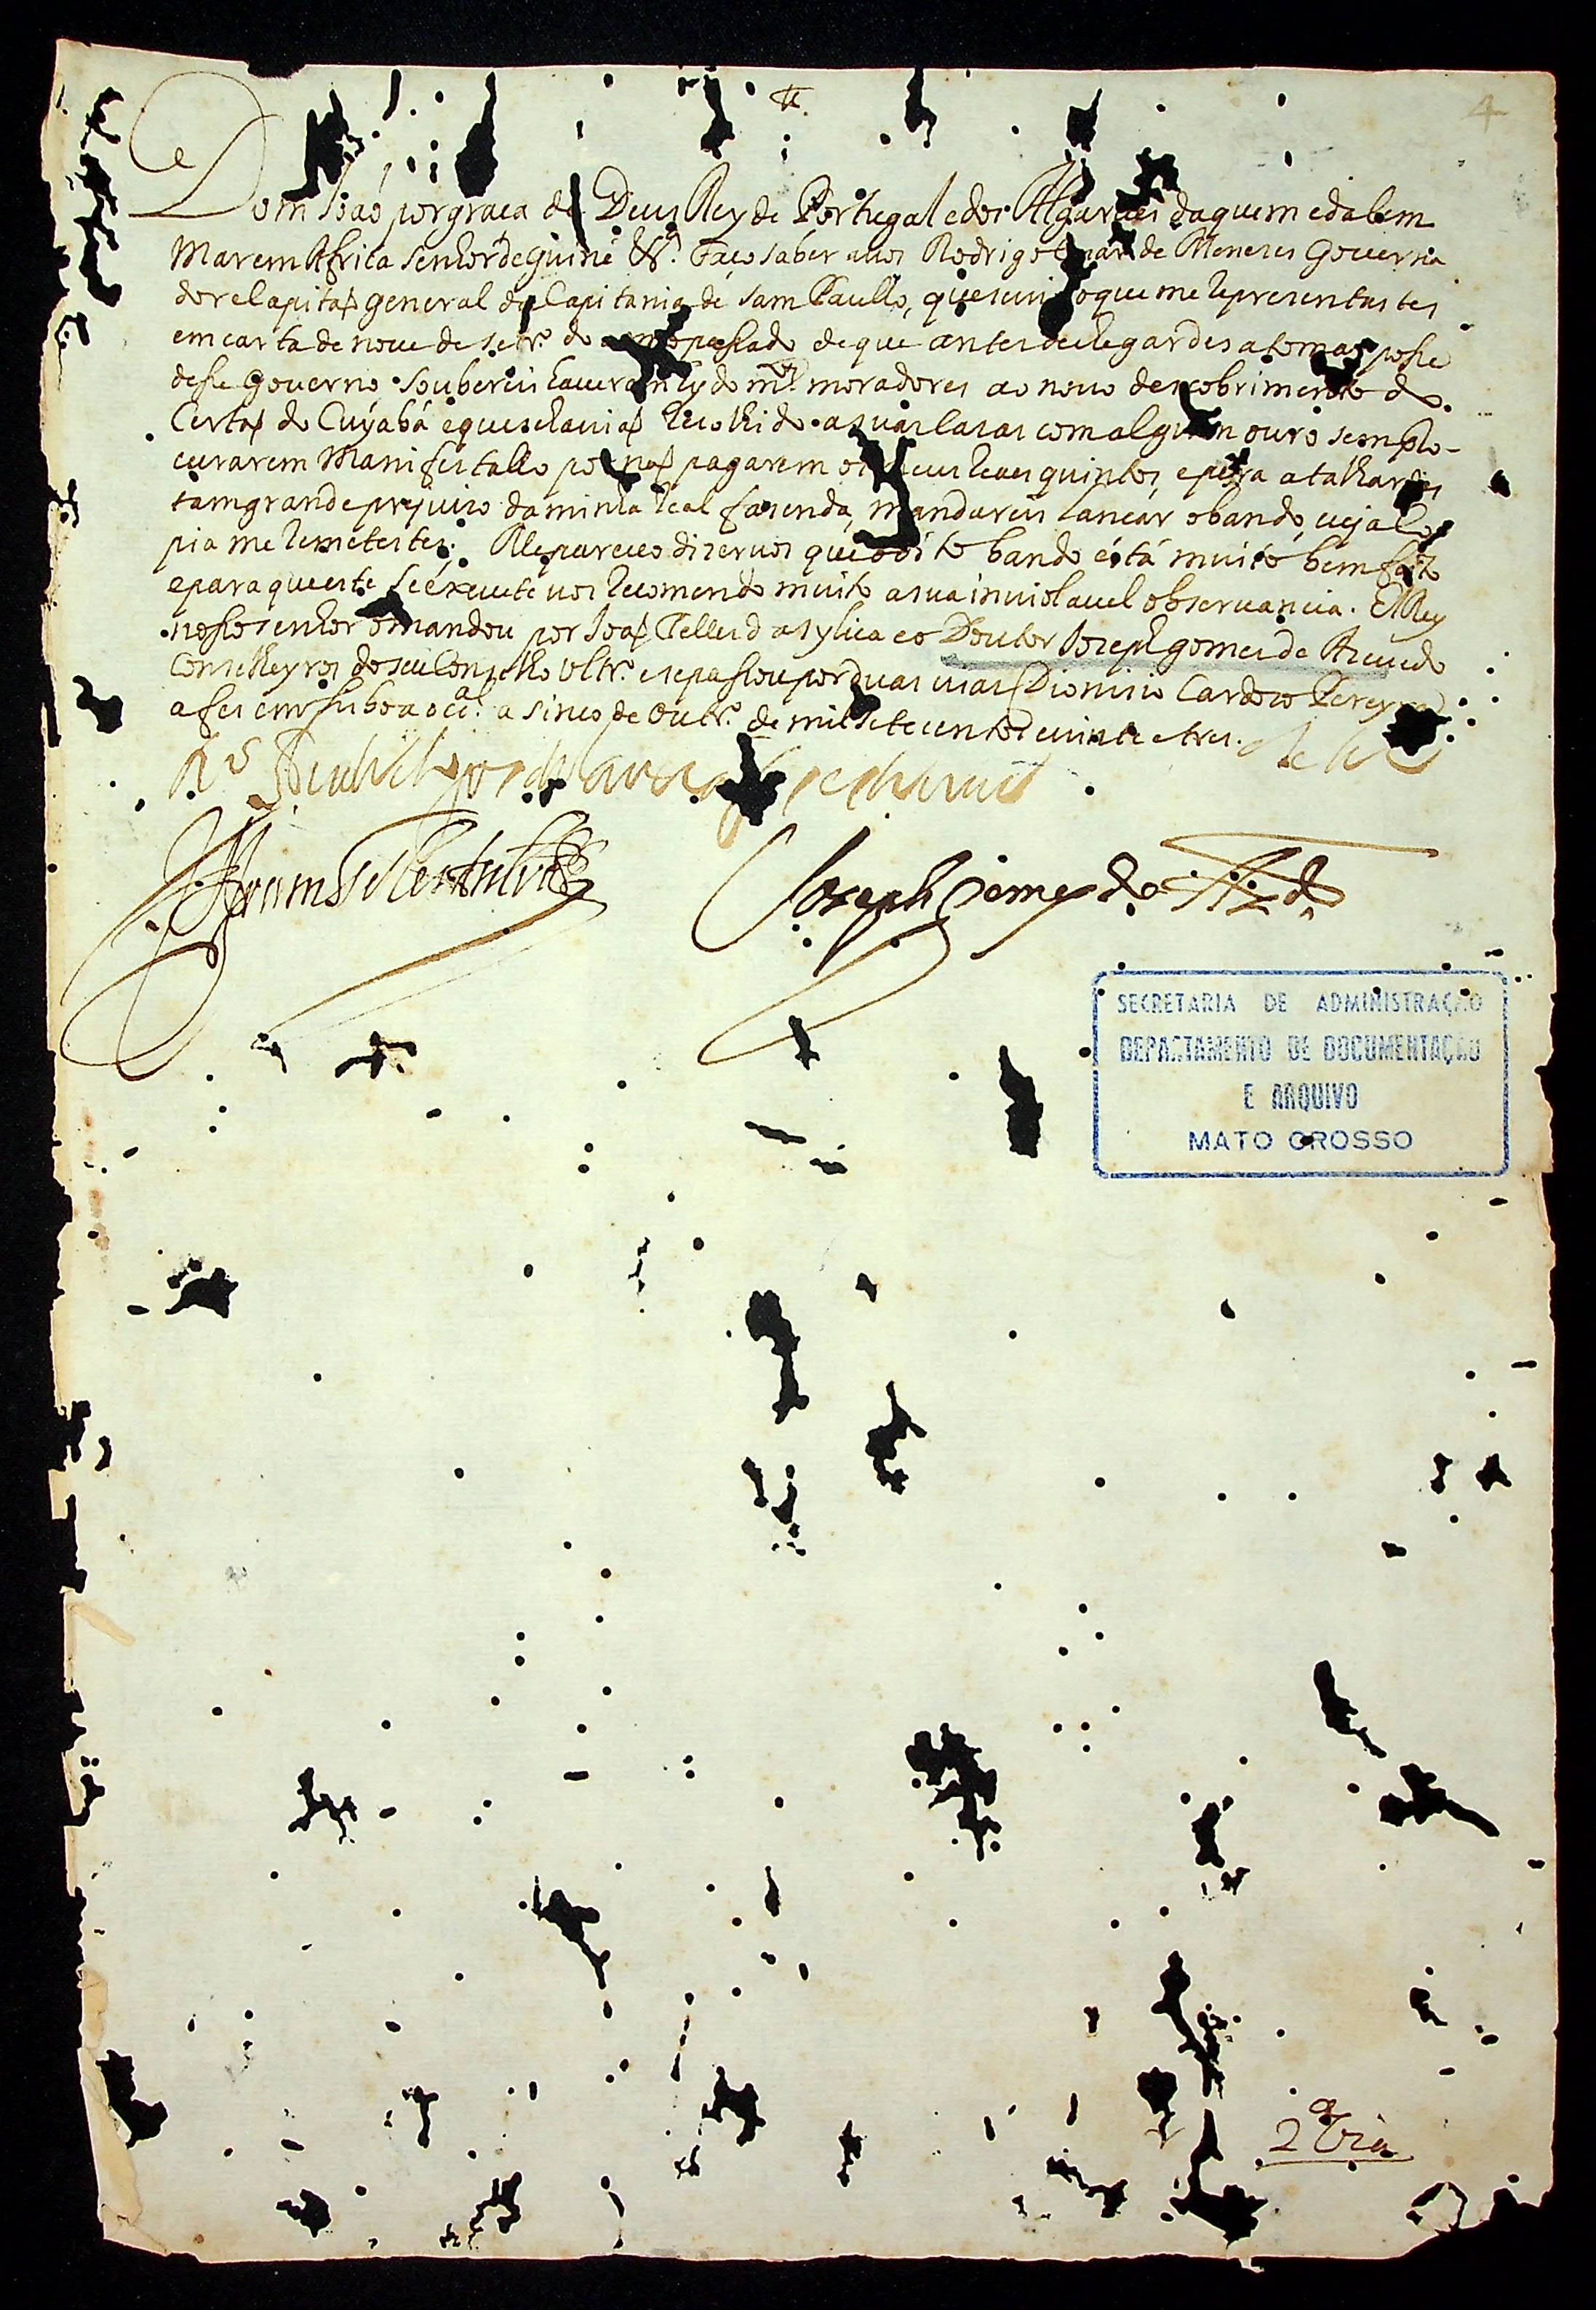 4
Dom Ioaõ por graça de Deus Rey de Portugal e dos Algarues daquem e dalem
Mar em Africa senhor de Guiné &.ª Faço saber auos Rodrigo Cezar de Meneses Gouerna
dor e Capitaõ general da Capitania de Sam Paullo, que se uio o que me representastes
em carta de noue de setr.º do anno passado de que antes de chegardes a tomar posse
desse Gouerno soubereis haueram hydo m.tos moradores ao nouo descobrimento do
Certaõ do Cuyabá e que se hauiaõ recolhido a suas casas com algum ouro sem pro-
curarem Manifestallo por naõ pagarem os meus reaes quintos, e pera atalhardes
tam grande prejuizo da minha real fazenda, mandareis lançar o bando, cuja co
pia me remetestes. Me pareceo dizeruos que o dito bando está muito bem feito
e para que este se execute uos recomendo muito a sua inuiolauel obseruancia. El Rey
nosso senhor o mandou por Ioaõ Telles da Sylua e o Doutor Ioseph gomes de Azeuedo
Conselheyros do seu Conselho Vltr.º e se passou por duas uias Dionisio Cardozo Pereyra
a fes em Lisboa occ.al a sinco de Outr.º de mil setecentos e uinte e tres.
Joseph Gomes de Azd.º
SECRETARIA DE ADMINISTRAÇÃO
DEPARTAMENTO DE DOCUMENTAÇÃO
E ARQUIVO
MATO GROSSO
2.ª Via